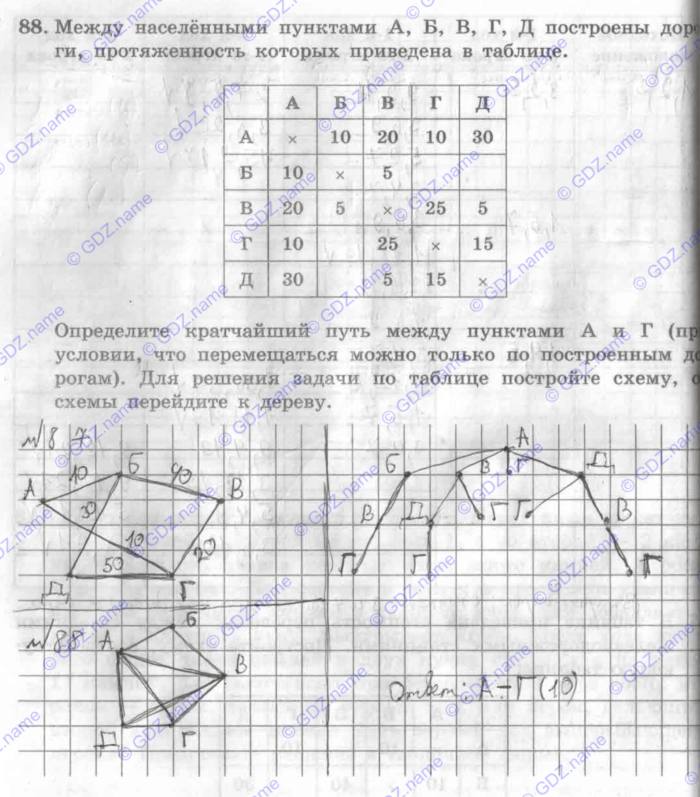 88. Между населёнными пунктами А, Б, В, Г, Д построены доро
ги, протяженность которых приведена в таблице.
А Б В Г Д
А × 10 20 10 30
Б 10 × 5
В 20 5 × 25 5
Г 10 25 × 15
Д 30 5 15 ×
Определите кратчайший путь между пунктами А и Г (пр
условии, что перемещаться можно только по построенным до
рогам). Для решения задачи по таблице постройте схему, о
схемы перейдите к дереву.
№87
А 10 Б 40 В
30 10 20
Д 50 Г
А
Б В Г Д
В Д Г Г В
Г Г Г
№88
Б
А В
Д Г
Ответ: А-Г(10)
© GDZ.name